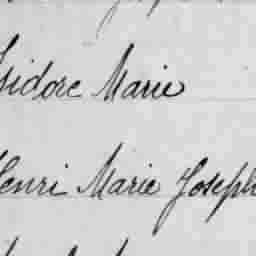 Isidore Marie
Henri Marie Joseph